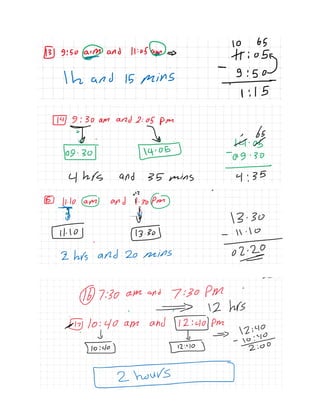 13 9:50 am and 11:05 am ⇒
1h and 15 mins
10 65
11:05
- 9:50
1:15
14 9:30 am and 2:05 pm
09.30 14.05
4 hrs and 35 mins
65
14.05
- 09.30
4:35
15 11:10 am and 1:30 pm
11.10 13.30
2 hrs and 20 mins
13.30
- 11.10
02.20
16 7:30 am and 7:30 pm
⇒ 12 hrs
17 10:40 am and 12:40 pm
10:40 12:40
⇒ 12:40
- 10:40
2:00
2 hours